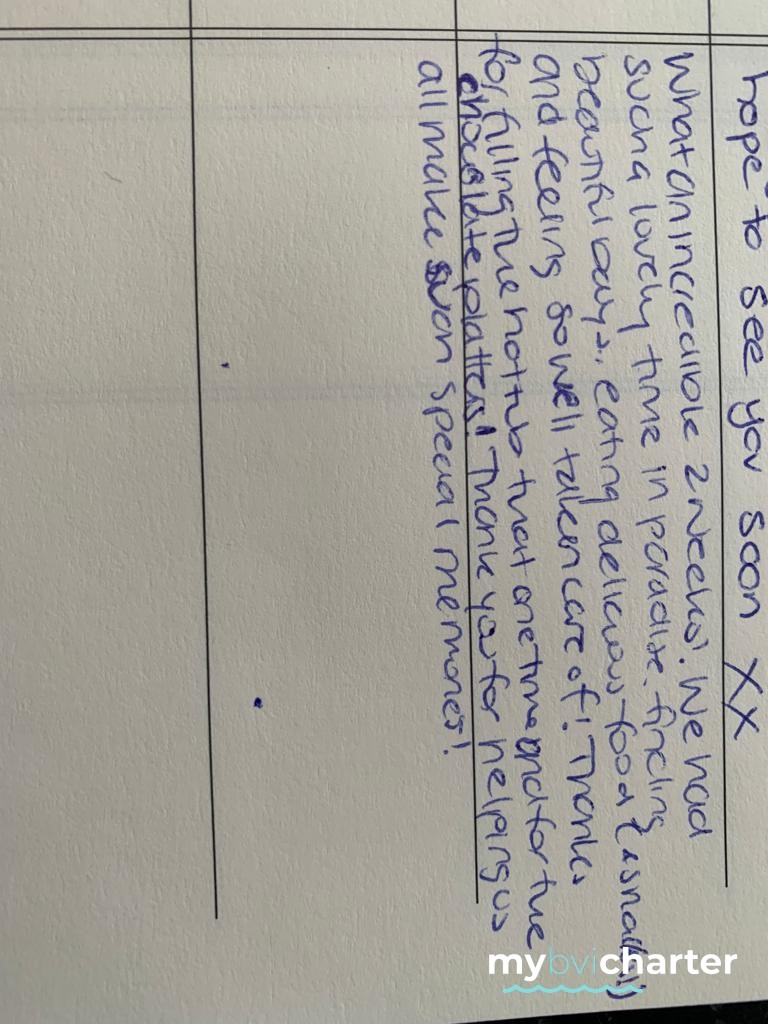 hope to see you soon XX
What an incredible 2 weeks! We had
such a lovely time in paradise, finding
beautiful bays, eating delicious food (& snacks!!)
and feeling so well taken care of! Thanks
for filling the hot tub that one time and for the
chocolate platters! Thank you for helping us
all make such special memories!
mybvicharter